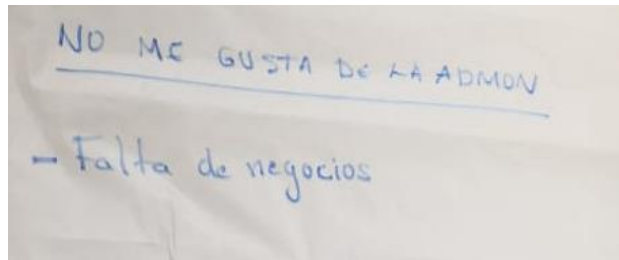 NO ME GUSTA DE LA ADMON
- Falta de negocios